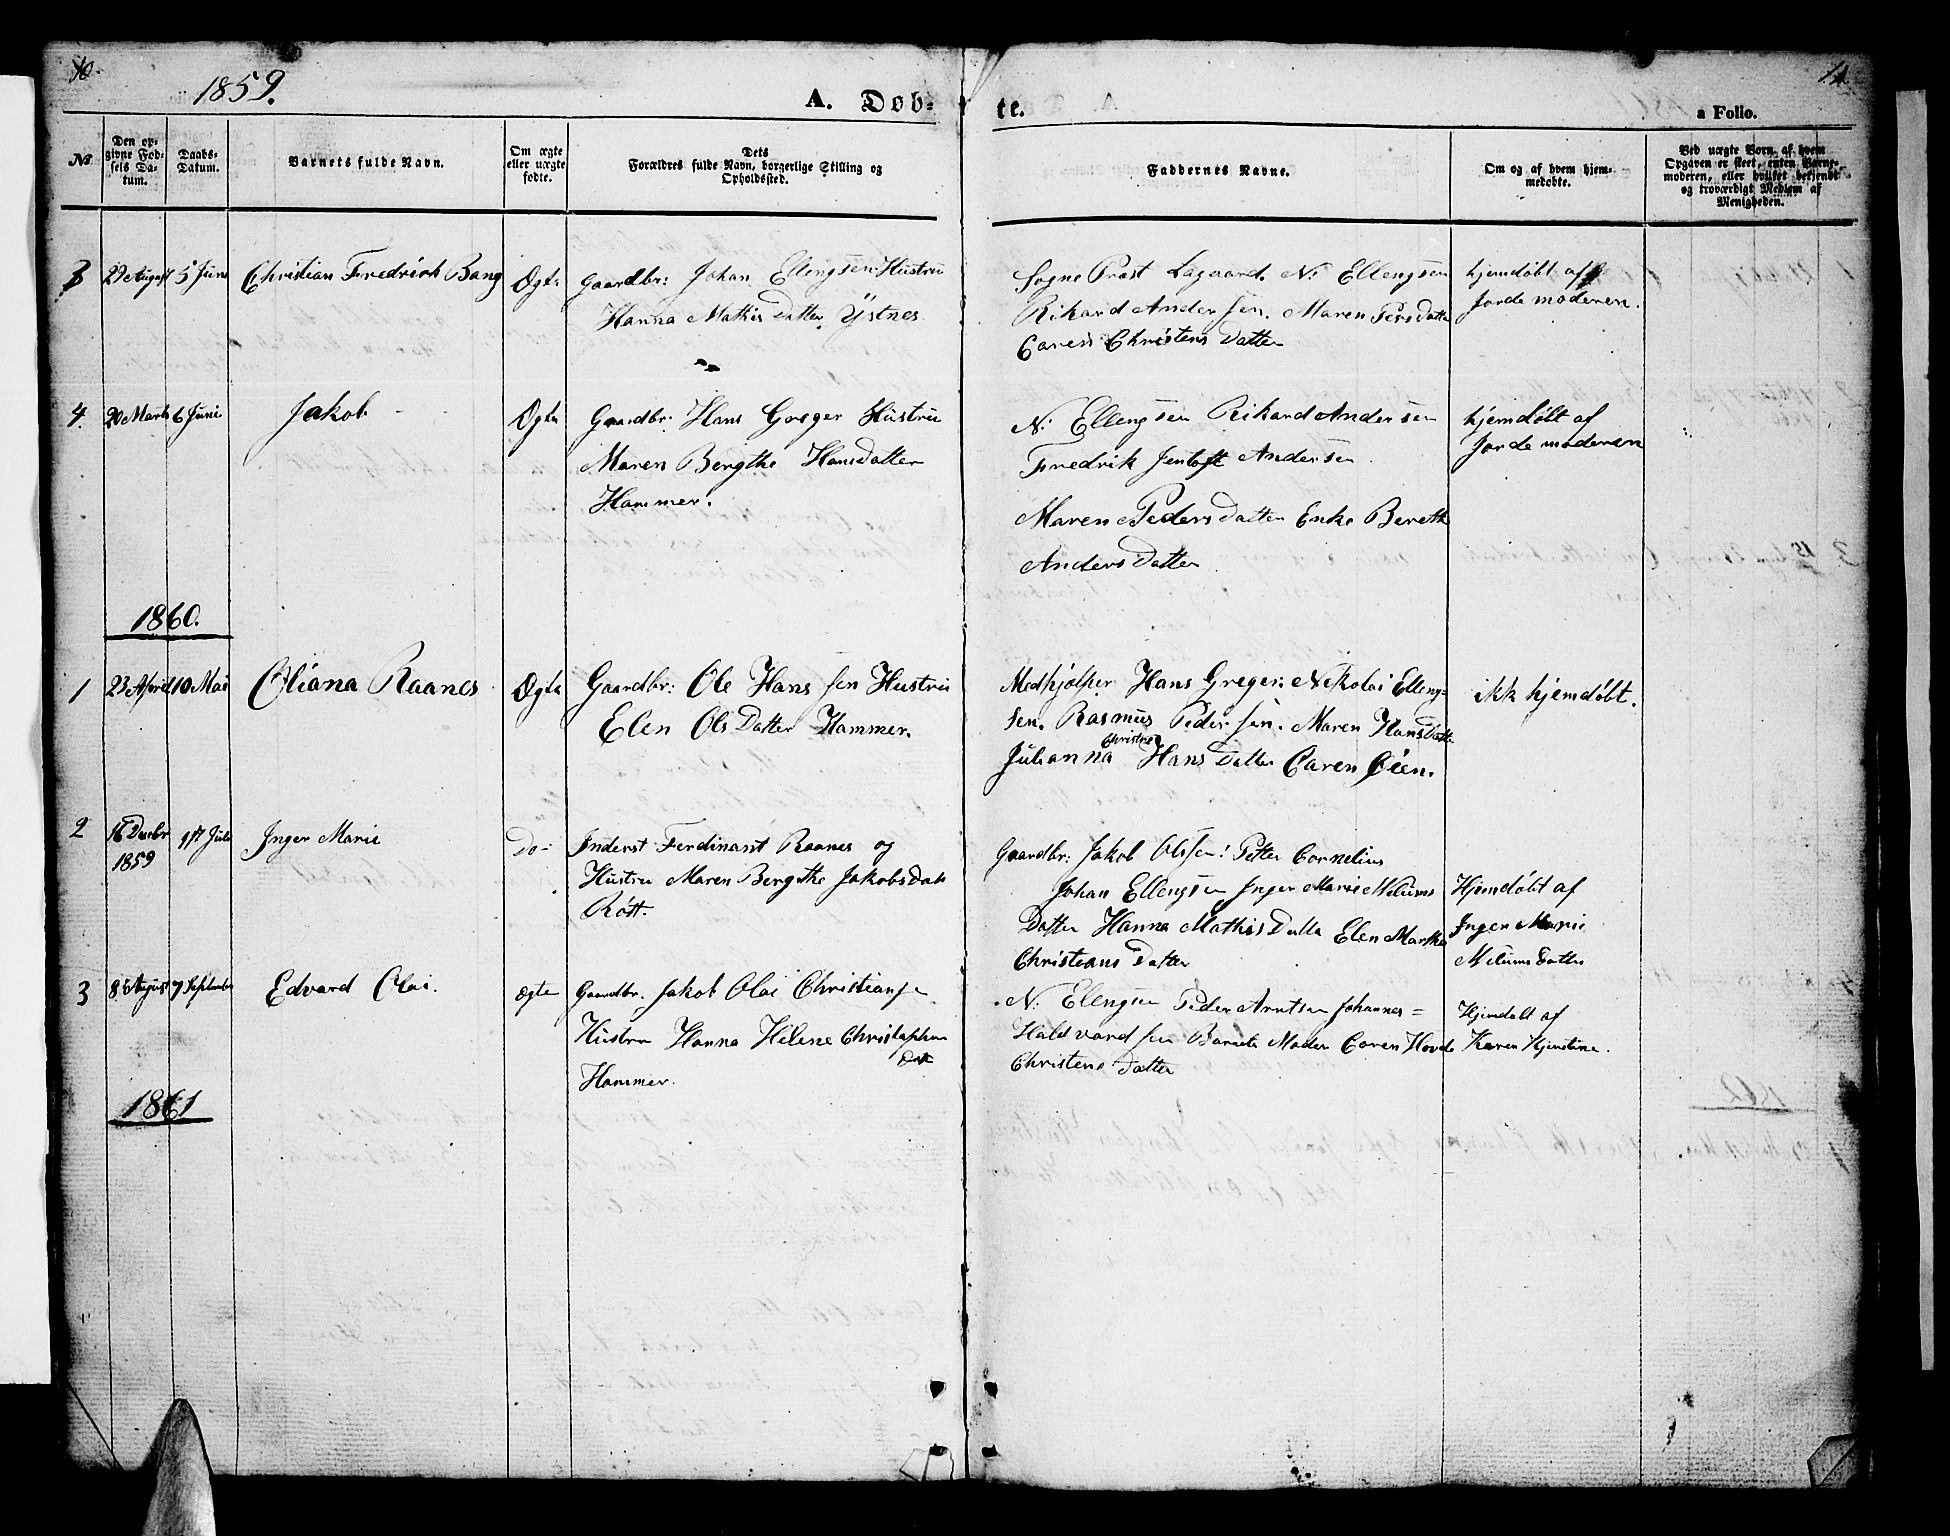 10.
1859.
A. Døb-
te.
11.
a Folio.
No
Den op-
givne Fød-
sels Da-
tum.
Daabs-
Datum.
Barnets fulde Navn.
Om ægte
eller uægte
fødte.
Dets
Forældres fulde Navn, borgerlige Stilling og
Opholdssted.
Faddernes Navne.
Om og af hvem hjem-
medøbte.
Ved uægte Børn, af hvem
Opgaven er skeet, enten Barne-
moderen, eller hvilket bekjendt
og troværdigt Medlem af
Menigheden.
3 29 August 5 Juni Christian Fredrich Bang Ægte Gaardbr: Johan Ellengsen Hustru
Hanna Mathis Datter Ystnes
Sogne Prøst Lagaard. N: Ellengsen
Rikard Andersen. Maren Pers Datter
Caren Christens Datter
hjemdøbt af
Jorde moderen.
4. 20 Marts 6 Juni Jakob Ægte Gaardbr: Hans Greger Hustru
Maren Bergthe HansDatter
Hammer.
N: Ellengsen Rikard Andersen
Fredrik Jentoft Andersen
Maren Peders Datter Enke Bereth
Anders Datter
hjemdøbt af
Jorde moderen
1860.
1 23 April 10 Mai Oliana Raanes Ægte Gaardbr: Ole Hans sen Hustru
Elen Ols Datter Hammer.
Medhjølper Hans Greger: Nikolai Elleng-
sen. Rasmus Peder sen. Maren Hans Datter
Christine
Julianna Hans Datter Caren Øien.
ikk hjemdøbt.
2 16 Decbr 17 Juli Inger Marie Do- Inderst Ferdinant Raanes og
1859
Hustru Maren Bergthe Jakobs Datt
Røst.
Gaardbr: Jakob Olssen: Petter Cornelius
Johan Ellengsen Inger Marie Melums
Datter Hanna Mathis Datter Elen Martha
Christians Datter
Hjemdøbt af
Inger Marie
Melums Datter
3 8 August 7 September Edvard Olai. Ægte Gaardbr. Jakob Olai Christiansen
Hustru Hanna Helene Christophers
Datt
Hammer.
N: Elengsen Peder Arntsen Johannes =
Hald vard sen Barnets Moder Caren Hovde
Christens Datter
Hjemdøbt af
Karen Kjerstine.
1861